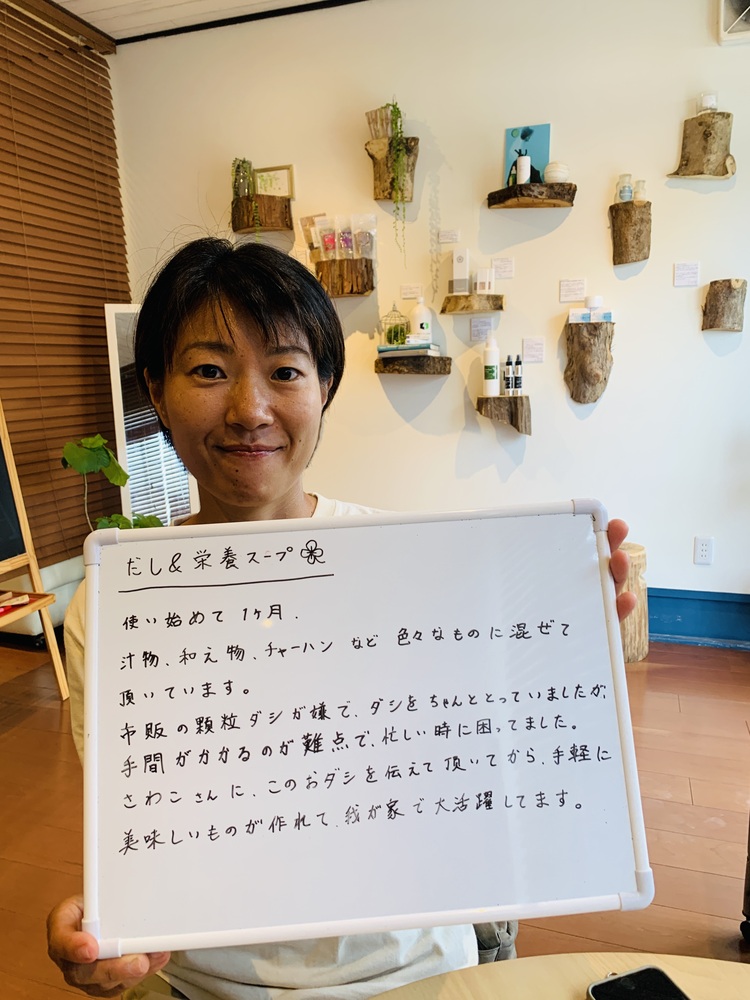 だし&栄養スープ
使い始めて 1ヶ月.
汁物、和え物、チャーハン など 色々なものに混ぜて
頂いています。
市販の顆粒ダシが嫌で、ダシをちゃんととっていましたが、
手間がかかるのが難点で、忙しい時に困ってました。
さわこさんに、このおダシを伝えて頂いてから、手軽に
美味しいものが作れて、我が家で大活躍してます。